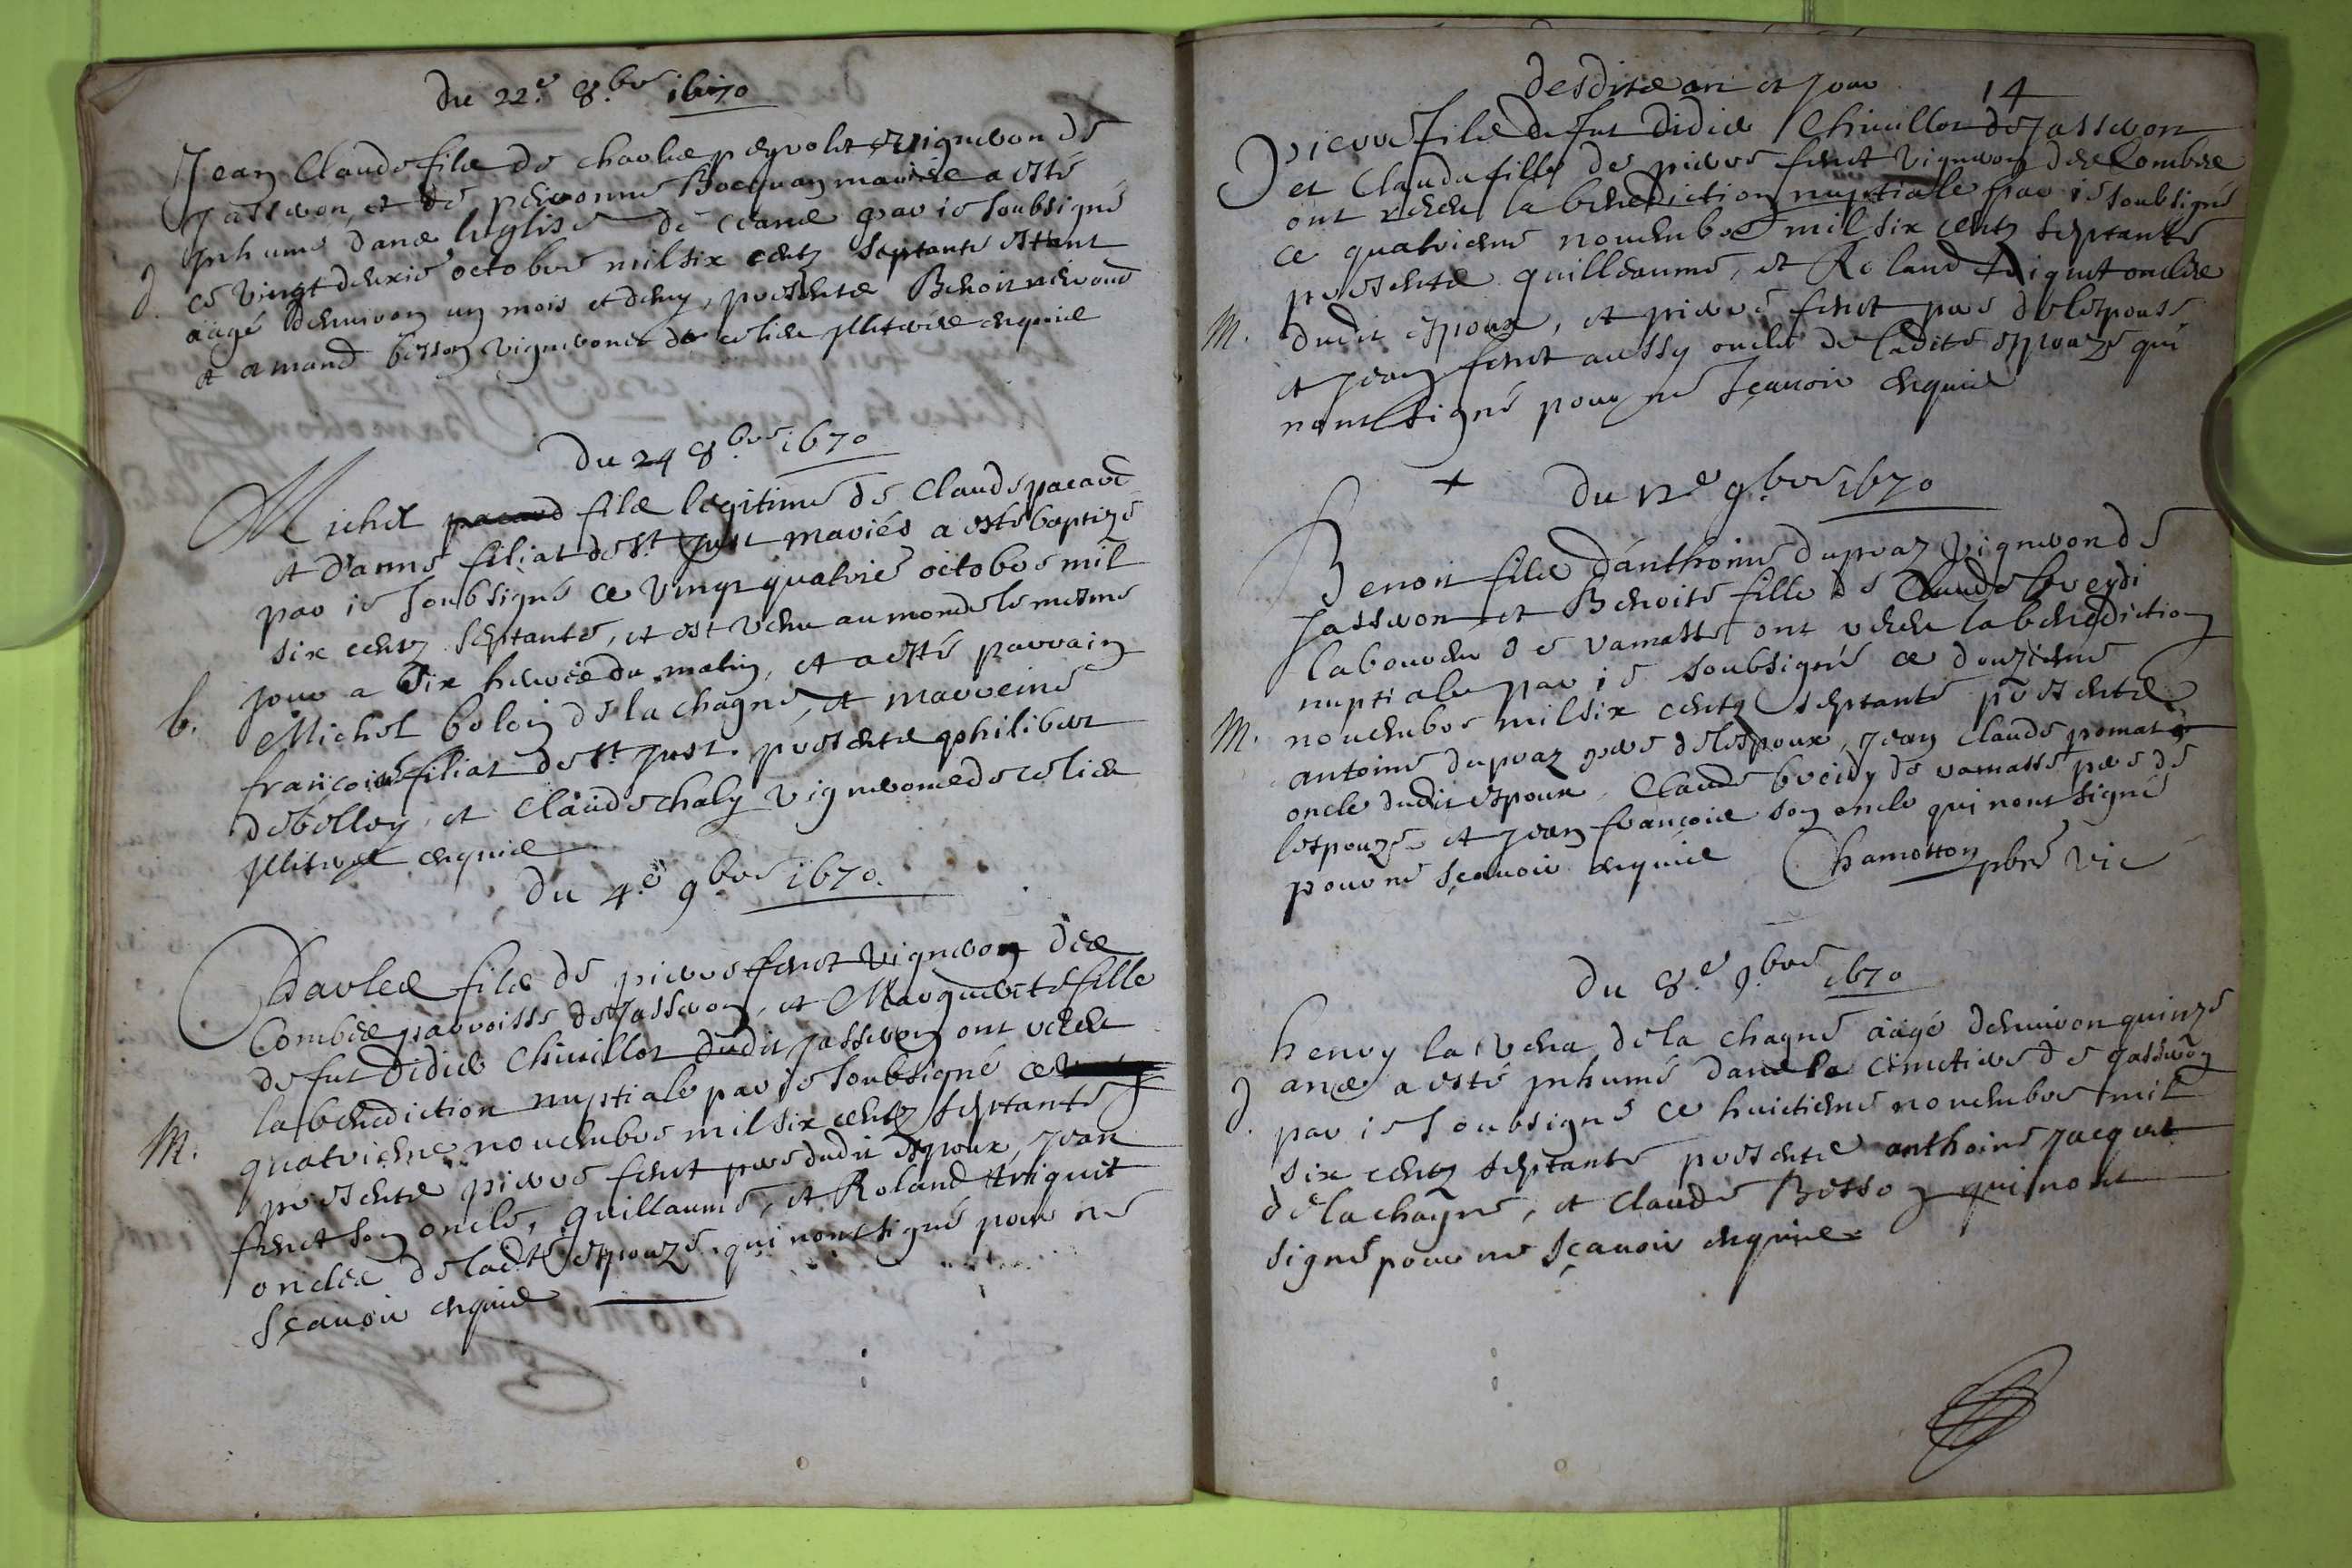 Du 22.e 8.bre 1670
Jean Claude filz de Charles peyrolet vigneron de
Jasseron, et de perronne Bocquan mariés a esté
Inhumé dans leglise de ceans par ie soubsigné
J. ce vingt deuxie octobre mil six centz septante estant
aagé denuiron un mois et demy, presentz Benoit
et amand besson vignerons de ce lieu Illitérés enquis
Du 24 8.bre 1670
Michel filz legitime de Claude pacard
et d'anne filiat de st Just mariés a esté baptizé
par ie soubsigné ce vingt quatrie octobre mil
six centz septante, et est venu au monde le mesme
jour a six heures du matin, et a esté parrain
b. Michel boloin de la chagne, et marreine
francoise filiat de st Just. presentz philibert
debelloy, et Claude chaly vignerons de ce lieu
Illiterés enquis
Du 4.e 9.bre 1670.
Charles filz de pierre feret vigneron des
Combes parroisse de Jasseron, et Marguerite fille
de fut Didier Chiuillot dudit Jasseron ont receu
la benediction nuptiale par ie soubsigné ce
M. quatriesme nouembre mil six centz septante
presentz pierre feret pere dudit espoux, Jean
feret son oncle, guillaume, et Roland triquet
oncles de ladte espouze qui nont signé pour ne
sçauoir enquis
desditz an et Jour 14
pierre filz de fut Didier Chiuillot de Jasseron
et Clauda fille de pierre feret vigneron des Combes
ont receu la benediction nuptiale par ie soubsigné
ce quatriesme nouembre mil six centz septante
presentz guilleaume, et Roland triquet oncles
M. dudit espoux, et pierre feret pere de lespouse
et Jean feret aussy oncle de ladite espouze qui
nont signé pour ne sçauoir enquis
+ Du 12e 9.bre 1670
Benoit filz d'anthoine dupraz vigneron de
Jasseron et Benoite fille de Claude breydi
laboureur de ramasse ont receu la benediction
nuptiale par ie soubsigné ce douziesme
M. nouembre mil six centz septante presentz
antoine dupraz pere de lespoux, Jean Claude pomat
oncle dudit espoux, Claude breidy de ramasse pere de
lespouze et Jean francois son oncle qui nont signé
pour ne sçauoir enquis Chamotton pbre vic
Du 8.e 9.bre 1670
henry la de la chagne aagé denuiron quinze
ans a esté Inhumé dans le cimetiere de Jasseron
J. par ie soubsigné ce huictiesme nouembre mil
six centz septante presentz anthoine Jacquet
de la chagne, et Claude Besson qui nont
signé pour ne sçauoir enquis